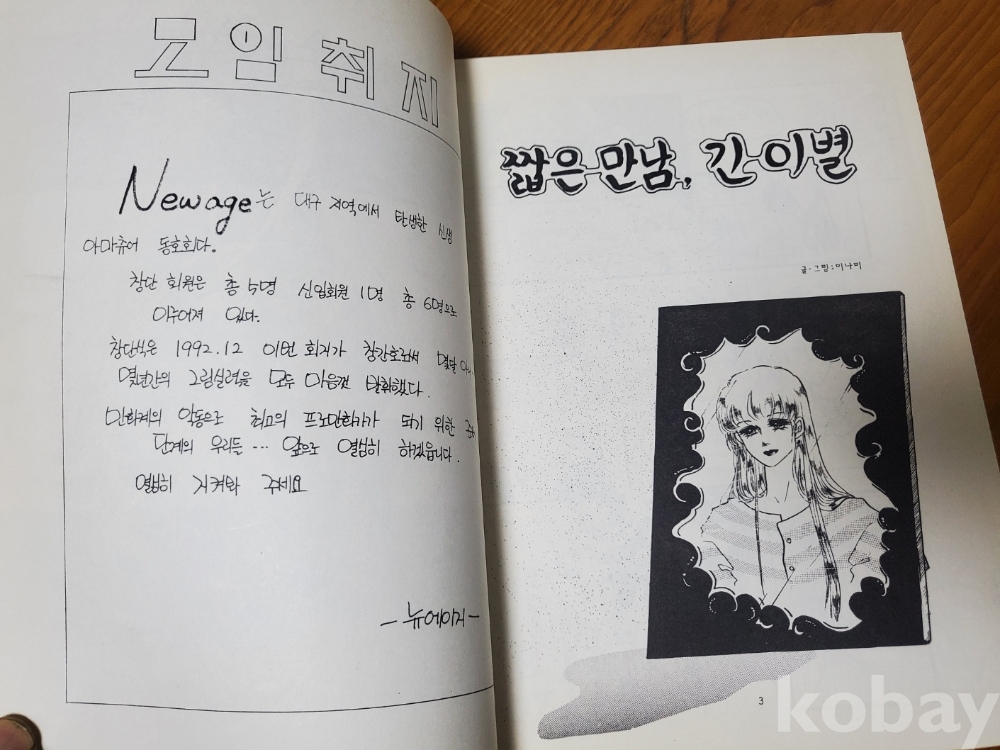 모임취지
New age는 대구 지역에서 탄생한 신생
아마츄어 동호회다.
창단 회원은 총 5명 신입회원 1명 총 6명으로
이루어져 있다.
창단식은 1992.12 이번 회지가 창간호로서 몇달
몇년간의 그림실력을 모두 마음껏 발휘했다.
만화계의 악동으로 최고의 프로만화가가 되기 위한
단계의 우리들… 앞으로 열심히 하겠읍니다.
열심히 지켜봐 주세요
-뉴에이지-
짧은 만남, 긴 이별
글·그림:미나미
3
kobay